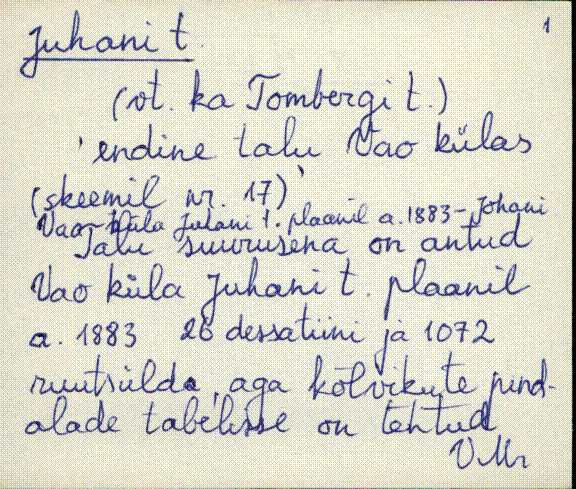 1
Juhani t.
(vt. ka Tombergi t.)
'endine talu Vao külas'
(skeemil nr. 17)
Vao küla Juhani t. plaanil a. 1883 - Johani
Talu suurusena on antud
Vao küla Juhani t. plaanil
a. 1883 26 dessatiini ja 1072
ruutsülda, aga kõlvikute pind-
alade tabelisse on tehtud
V Mr